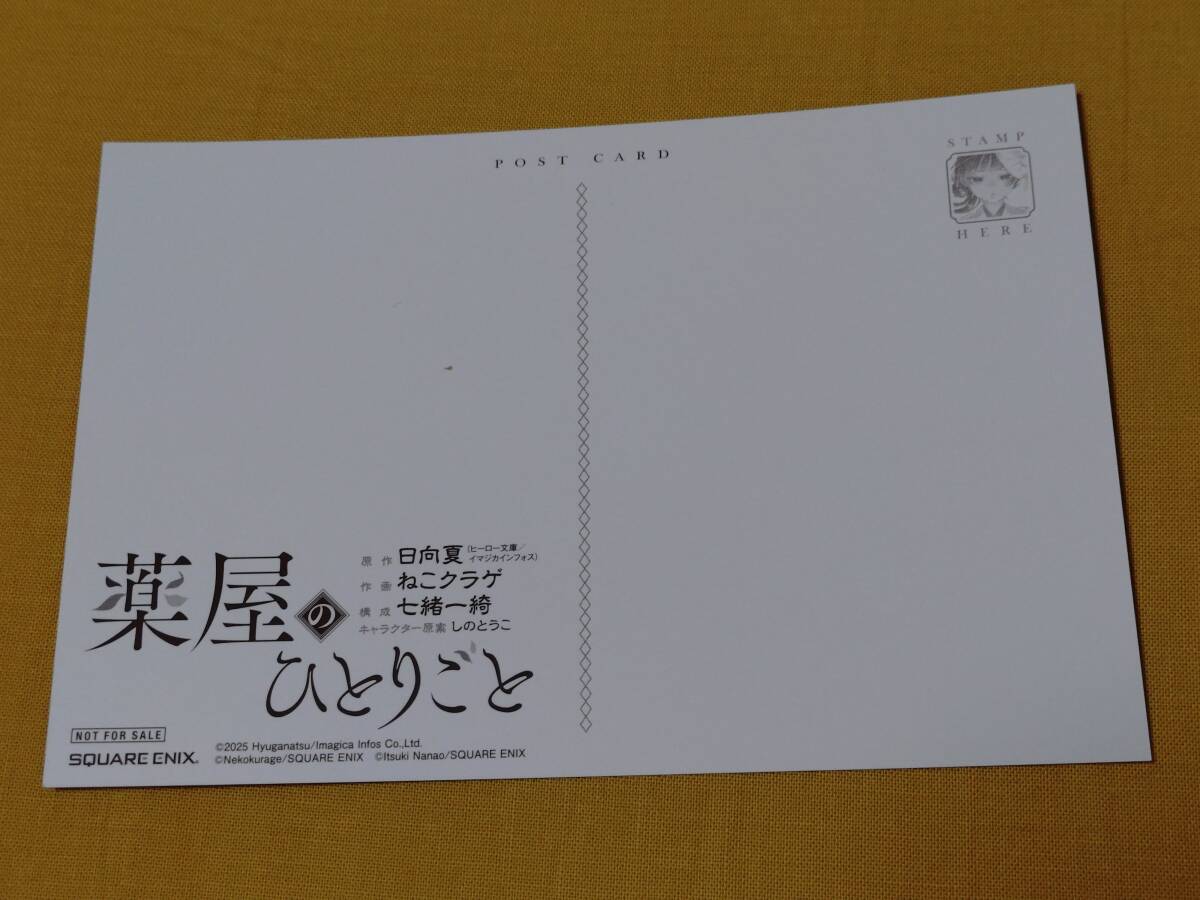 POST CARD
STAMP
HERE
薬屋の
ひとりごと
原作 日向夏 (ヒーロー文庫/
イマジカインフォス)
作画 ねこクラゲ
構成 七緒一綺
キャラクター原案 しのとうこ
NOT FOR SALE
SQUARE ENIX.
©2025 Hyuganatsu/Imagica Infos Co.,Ltd.
©Nekokurage/SQUARE ENIX ©Itsuki Nanao/SQUARE ENIX